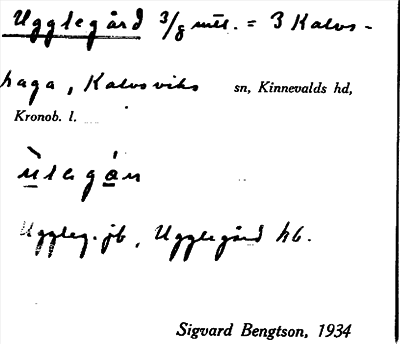 Ugglegård 3/8 mtl. = 3 Kalvs-
haga, Kalvsviks sn, Kinnevalds hd,
Kronob. l.
ùlegán
Uggleg. jb, Ugglegård hb.
Sigvard Bengtson, 1934